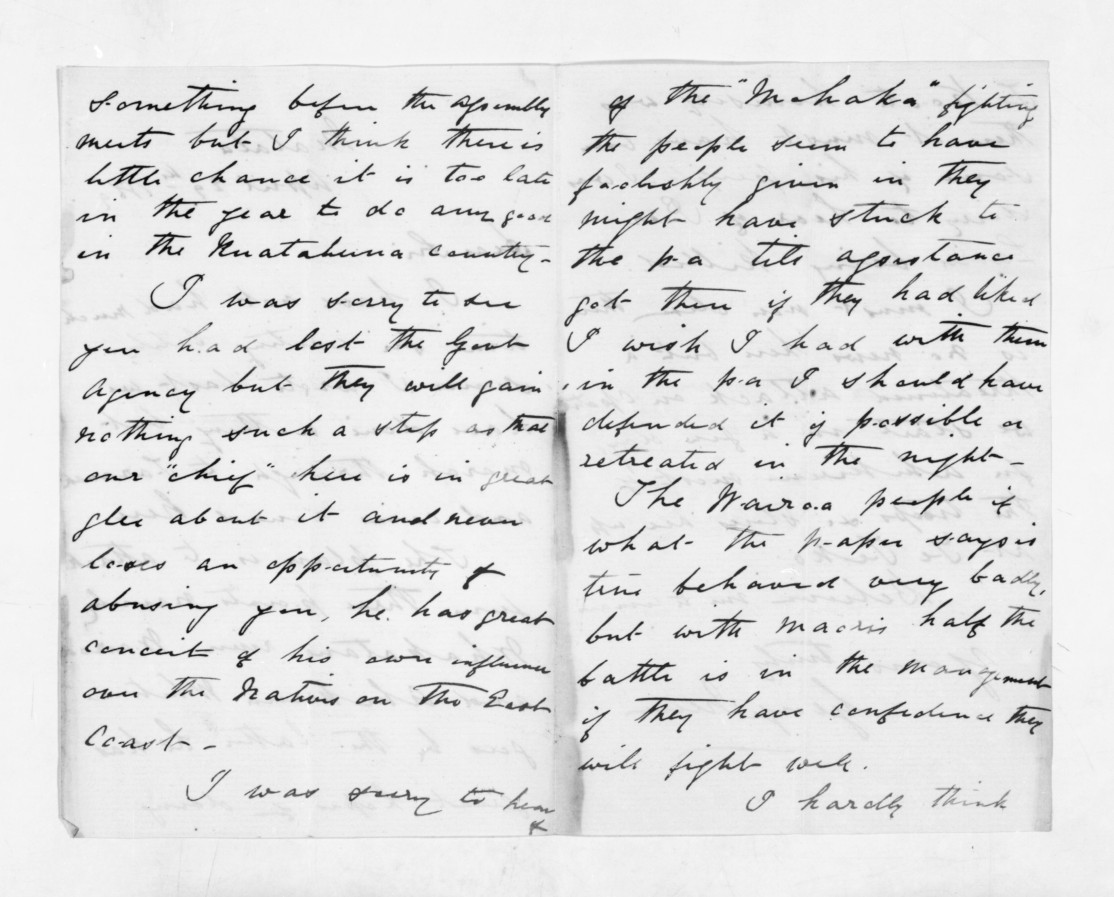 something before the assembly
meets but I think there is
little chance it is too late
in the year to do any good
in the Ruatahuna country -
I was sorry to see
you had lost the Govt
Agency but they will gain
nothing such a step as that
our "chief" here is in great
glee about it and never
loses an opportunity of
abusing you, he has great
conceit of his own influence
over the Natives on the East
Coast -
I was sorry to hear
of
of the "Mohaka" fighting
the people seem to have
foolishly given in they
might have stuck to
the pa till assistance
got there if they had liked
I wish I had with them
in the pa I should have
defended it if possible or
retreated in the night -
The Wairoa people if
what the paper says is
true behaved very badly,
but with maoris half the
battle is in the mangement
if they have confidence they
will fight well.
I hardly think